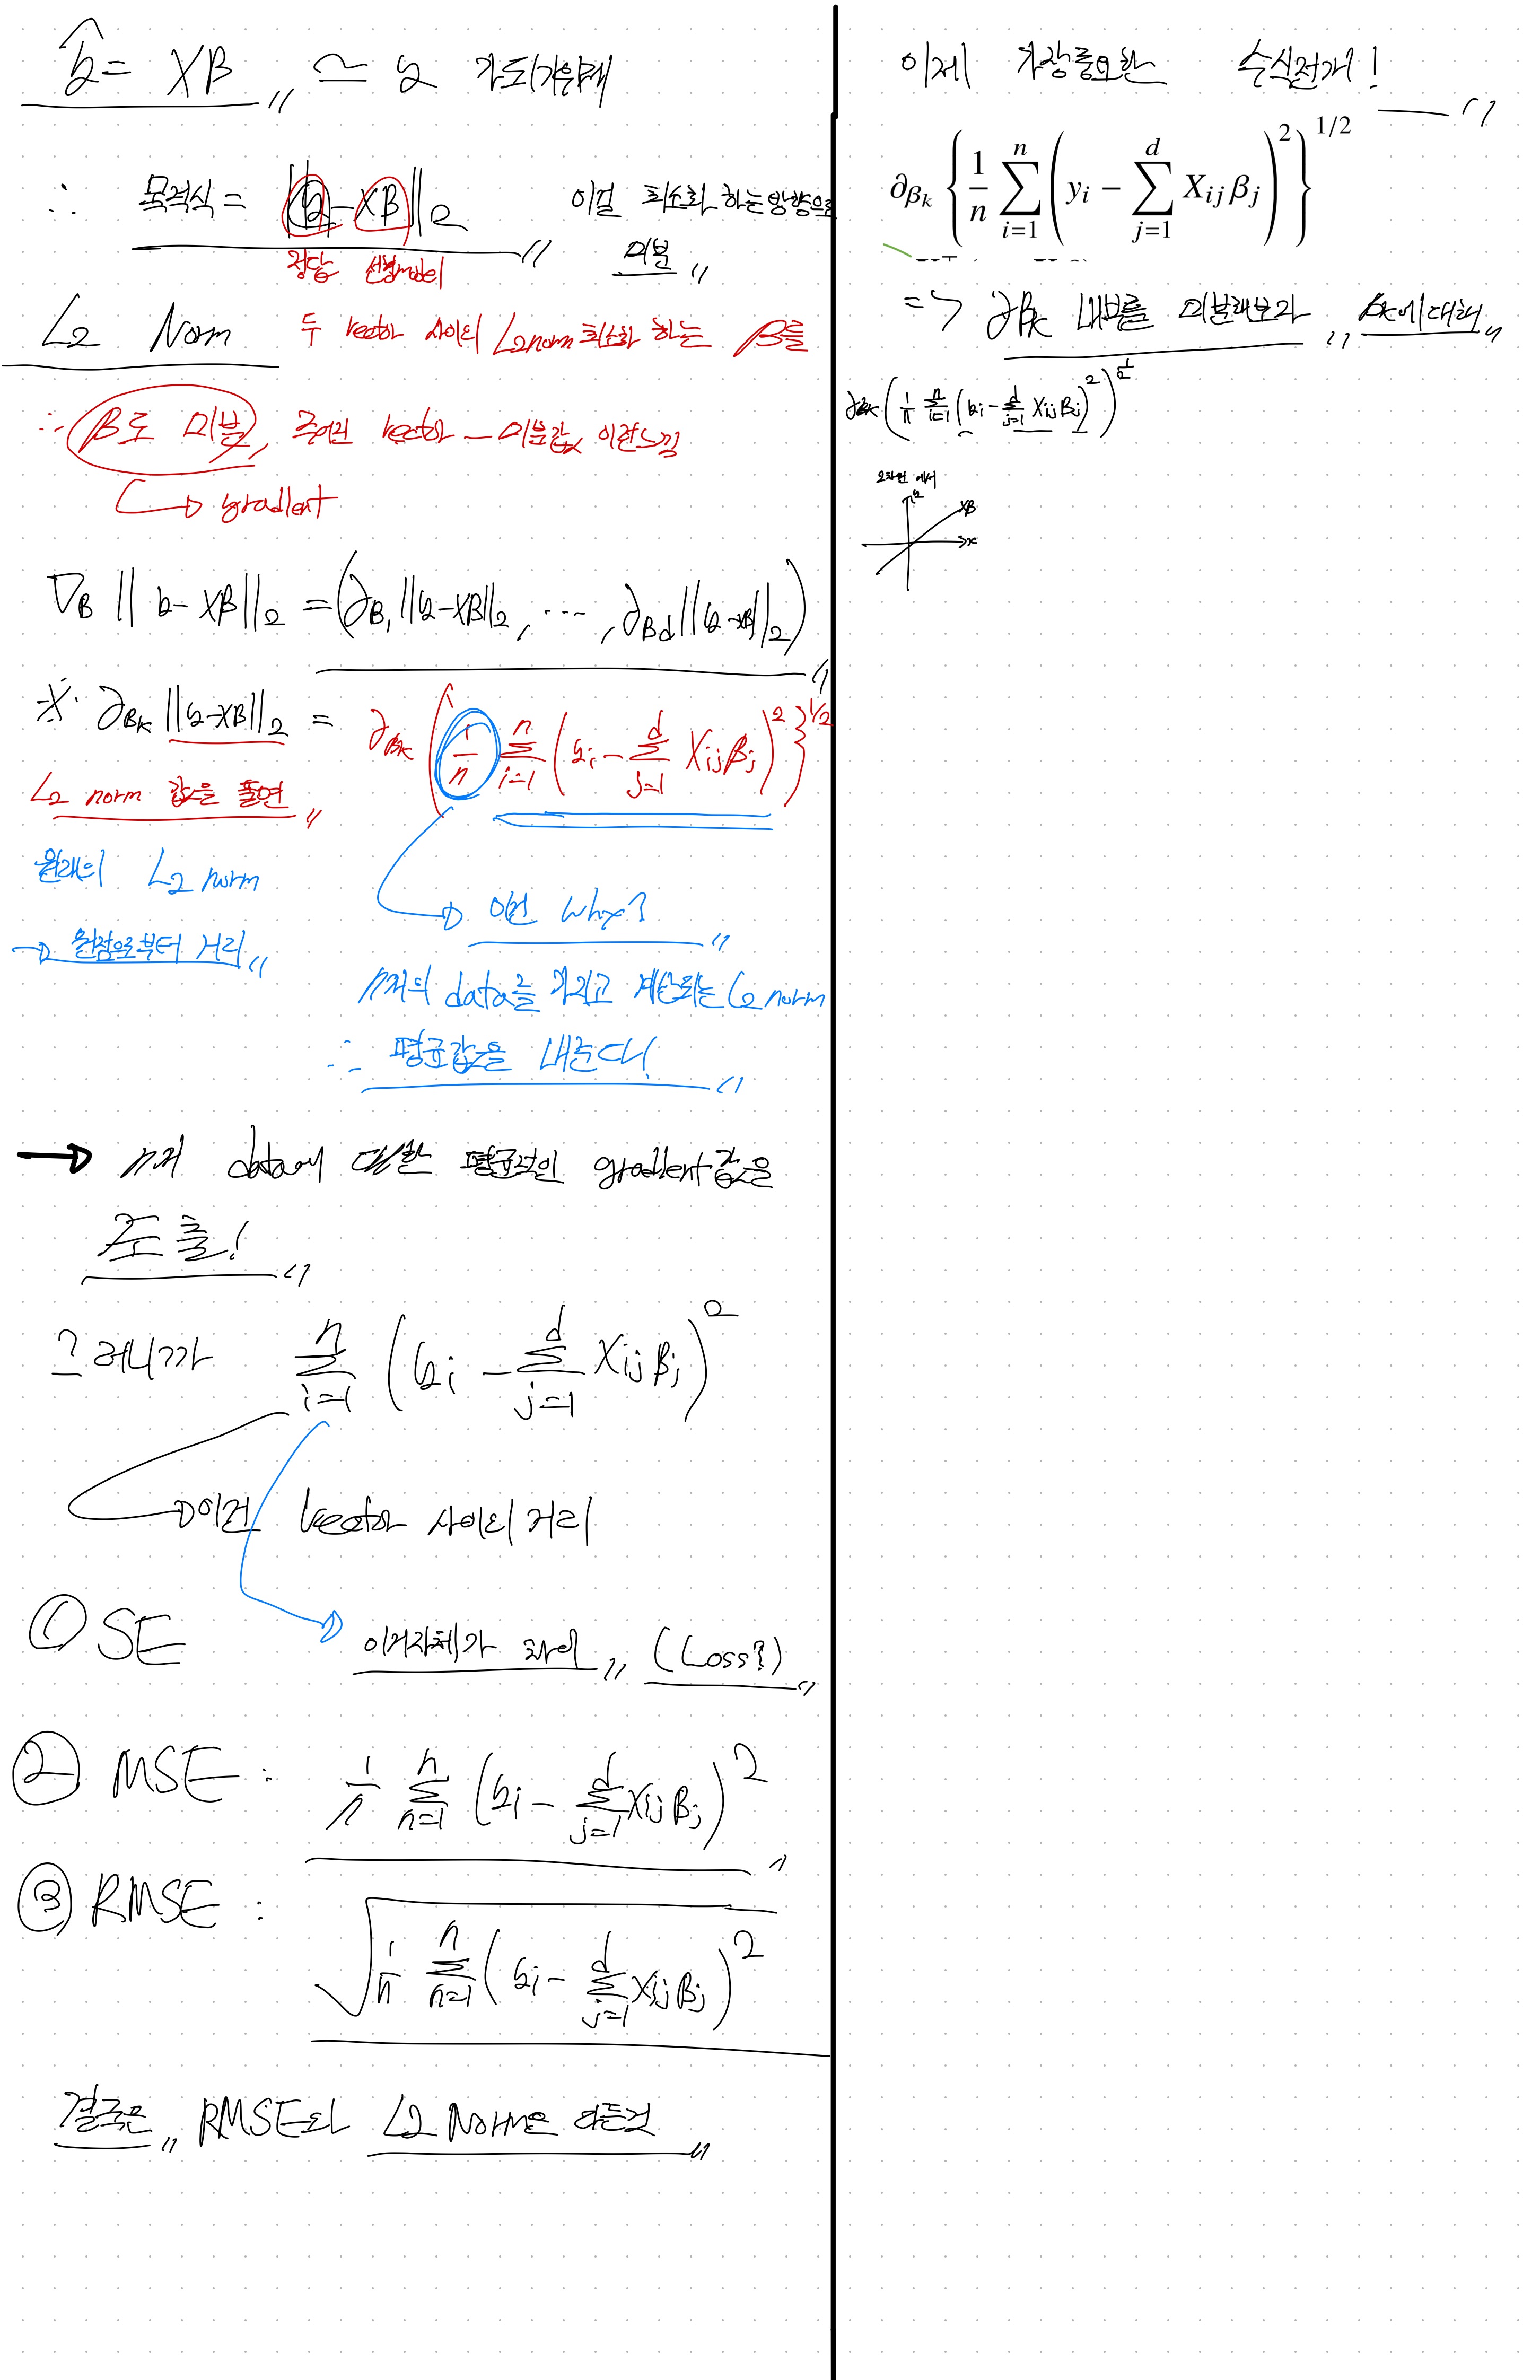 ŷ = Xβ ,, ≃ y 가 되기위해
∴ 목적식 = ||y - Xβ||₂ 이걸 최소화 하는 방향으로
정답 선형model 미분 ,,
L₂ Norm 두 vector 사이의 L₂norm 최소화 하는 β를
∴ β로 미분, 주어진 vector - 미분값 이런느낌
↳ gradient
∇β ||y - Xβ||₂ = (∂β₁||y-Xβ||₂, ⋯, ∂βd||y-Xβ||₂)
※ ∂βk ||y-Xβ||₂ = ∂βk { 1/n Σ_{i=1}^{n} (yi - Σ_{j=1}^{d} Xij βj)² }^{1/2}
L₂ norm 값을 풀면 ,,
원래의 L₂ norm
→ 원점으로부터 거리 ,,
→ 이건 why?
n개의 data를 가지고 계산되는 L₂ norm
∴ 평균값을 내준다!
→ n개 data에 대한 평균적인 gradient 값을
도출!
그러니까 Σ_{i=1}^{n} (yi - Σ_{j=1}^{d} Xij βj)²
→ 이건 vector 사이의 거리
① SE 이거자체가 차이 ,, (Loss?) ,,
② MSE : 1/n Σ_{n=1}^{n} (yi - Σ_{j=1}^{d} Xij βj)²
③ RMSE : √(1/n Σ_{n=1}^{n} (yi - Σ_{j=1}^{d} Xij βj)²)
결국은 ,, RMSE와 L2 Norm은 다른것
이제 가장중요한 수식전개!
∂βk { 1/n Σ_{i=1}^{n} (yi − Σ_{j=1}^{d} Xij βj)² }^{1/2}
=> ∂βk 내부를 미분해보자 ,, βk에 대해 ,,
∂βk (1/n Σ_{i=1}^{n} (yi - Σ_{j=1}^{d} Xij βj)²)^{1/2}
에서
y
Xβ
x